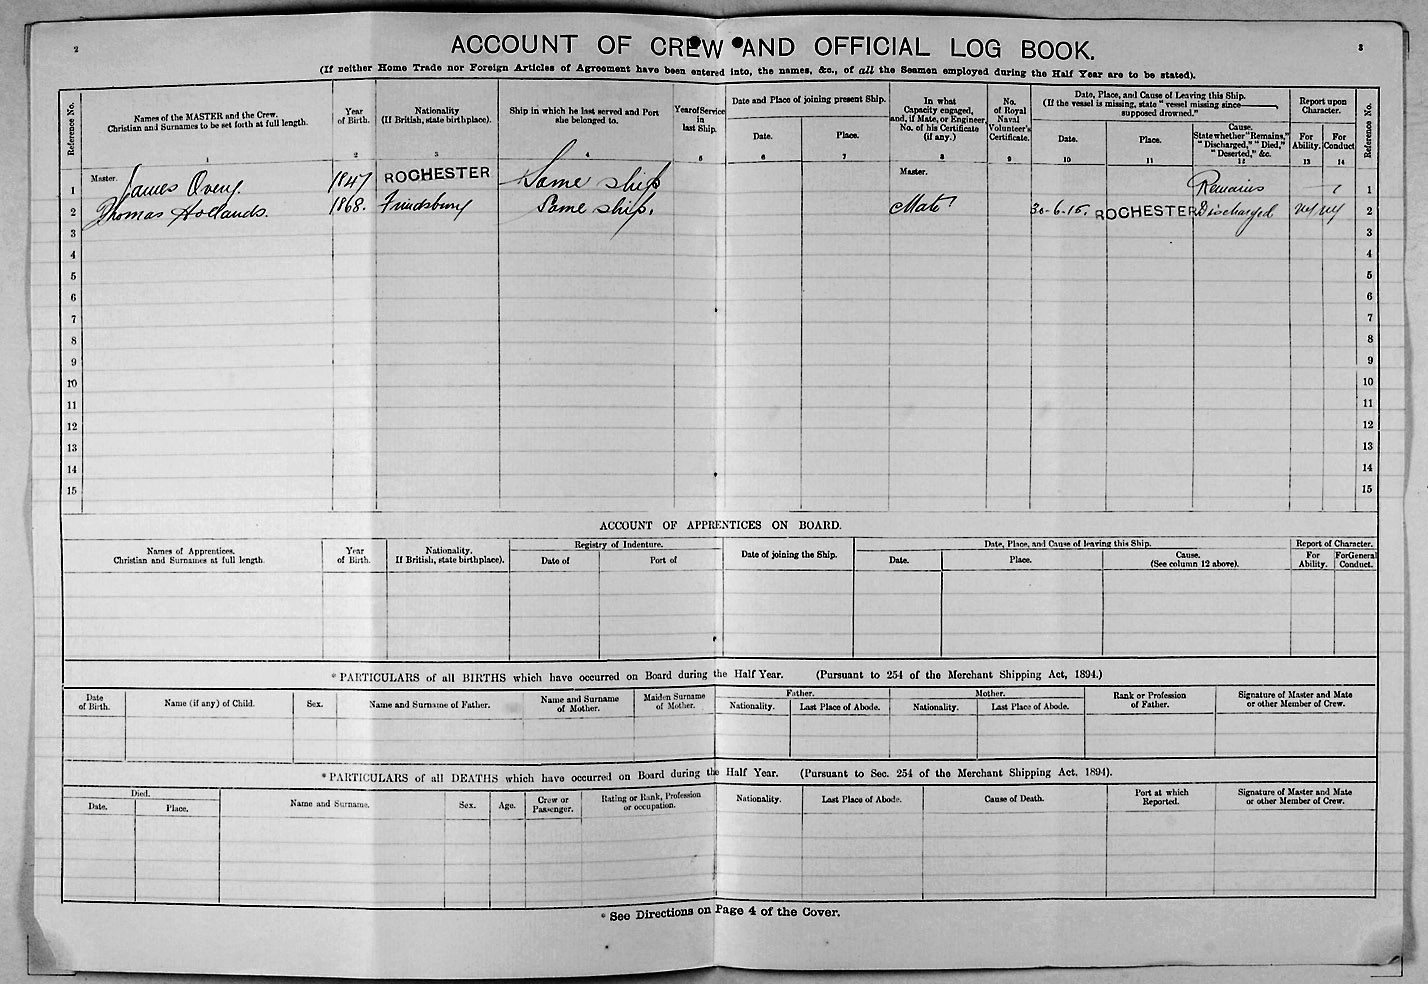 2
3
ACCOUNT OF CREW AND OFFICIAL LOG BOOK.
(If neither Home Trade nor Foreign Articles of Agreement have been entered into, the names, &c., of all the Seamen employed during the Half Year are to be stated).
Reference No.
Names of the MASTER and the Crew.
Christian and Surnames to be set forth at full length.
1
Year
of Birth.
2
Nationality
(If British, state birthplace).
3
Ship in which he last served and Port
she belonged to.
4
Year of Service
in
last Ship.
5
Date and Place of joining present Ship.
Date.
6
Place.
7
In what
Capacity engaged,
and, if Mate, or Engineer,
No. of his Certificate
(if any.)
8
No.
of Royal
Naval
Volunteer's
Certificate.
9
Date, Place, and Cause of Leaving this Ship.
(If the vessel is missing, state "vessel missing since
supposed drowned."
Date.
10
Place.
11
Cause.
State whether "Remains,"
"Discharged," "Died,"
"Deserted," &c.
12
Report upon
Character.
For
Ability.
13
For
Conduct
14
Reference No.
1 Master. James Overy. 1847 ROCHESTER Same ship Master. Remains 1
2 Thomas Hollands. 1868. Frindsbury Same ship. Mate 30-6-15. ROCHESTER Discharged VG VG 2
3 3
4 4
5 5
6 6
7 7
8 8
9 9
10 10
11 11
12 12
13 13
14 14
15 15
ACCOUNT OF APPRENTICES ON BOARD.
Names of Apprentices.
Christian and Surnames at full length.
Year
of Birth.
Nationality.
If British, state birthplace).
Registry of Indenture.
Date of
Port of
Date of joining the Ship.
Date, Place, and Cause of leaving this Ship.
Date.
Place.
Cause.
(See column 12 above).
Report of Character.
For
Ability.
For General
Conduct.
* PARTICULARS of all BIRTHS which have occurred on Board during the Half Year. (Pursuant to 254 of the Merchant Shipping Act, 1894.)
Date
of Birth.
Name (if any) of Child.
Sex.
Name and Surname of Father.
Name and Surname
of Mother.
Maiden Surname
of Mother.
Father.
Nationality.
Last Place of Abode.
Mother.
Nationality.
Last Place of Abode.
Rank or Profession
of Father.
Signature of Master and Mate
or other Member of Crew.
* PARTICULARS of all DEATHS which have occurred on Board during the Half Year. (Pursuant to Sec. 254 of the Merchant Shipping Act, 1894).
Died.
Date.
Place.
Name and Surname.
Sex.
Age.
Crew or
Passenger.
Rating or Rank, Profession
or occupation.
Nationality.
Last Place of Abode.
Cause of Death.
Port at which
Reported.
Signature of Master and Mate
or other Member of Crew.
* See Directions on Page 4 of the Cover.